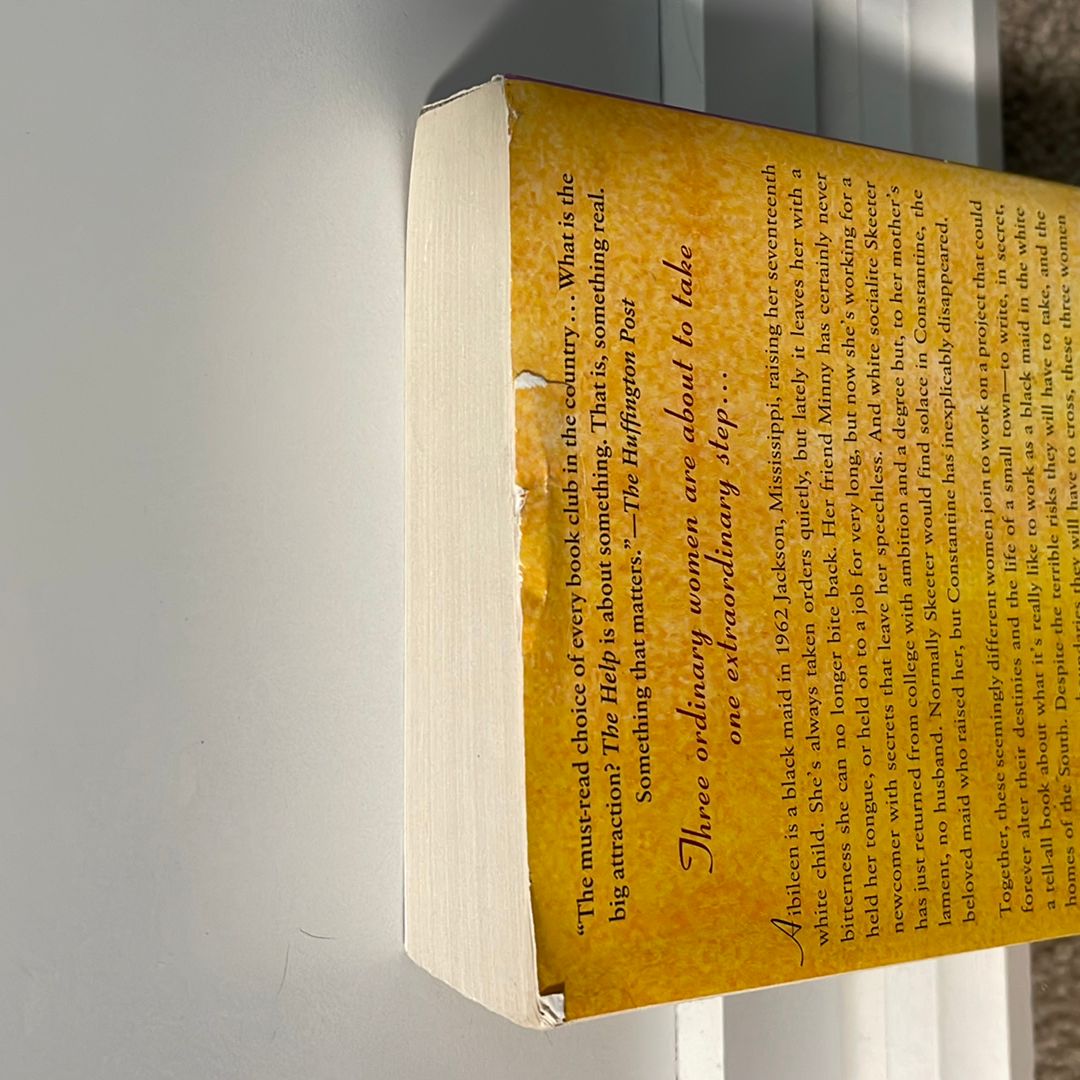 “The must-read choice of every book club in the country…What is the
big attraction? The Help is about something. That is, something real.
Something that matters.”—The Huffington Post
Three ordinary women are about to take
one extraordinary step…
Aibileen is a black maid in 1962 Jackson, Mississippi, raising her seventeenth
white child. She’s always taken orders quietly, but lately it leaves her with a
bitterness she can no longer bite back. Her friend Minny has certainly never
held her tongue, or held on to a job for very long, but now she’s working for a
newcomer with secrets that leave her speechless. And white socialite Skeeter
has just returned from college with ambition and a degree but, to her mother’s
lament, no husband. Normally Skeeter would find solace in Constantine, the
beloved maid who raised her, but Constantine has inexplicably disappeared.
Together, these seemingly different women join to work on a project that could
forever alter their destinies and the life of a small town—to write, in secret,
a tell-all book about what it’s really like to work as a black maid in the white
homes of the South. Despite the terrible risks they will have to take, and the
they will have to cross, these three women